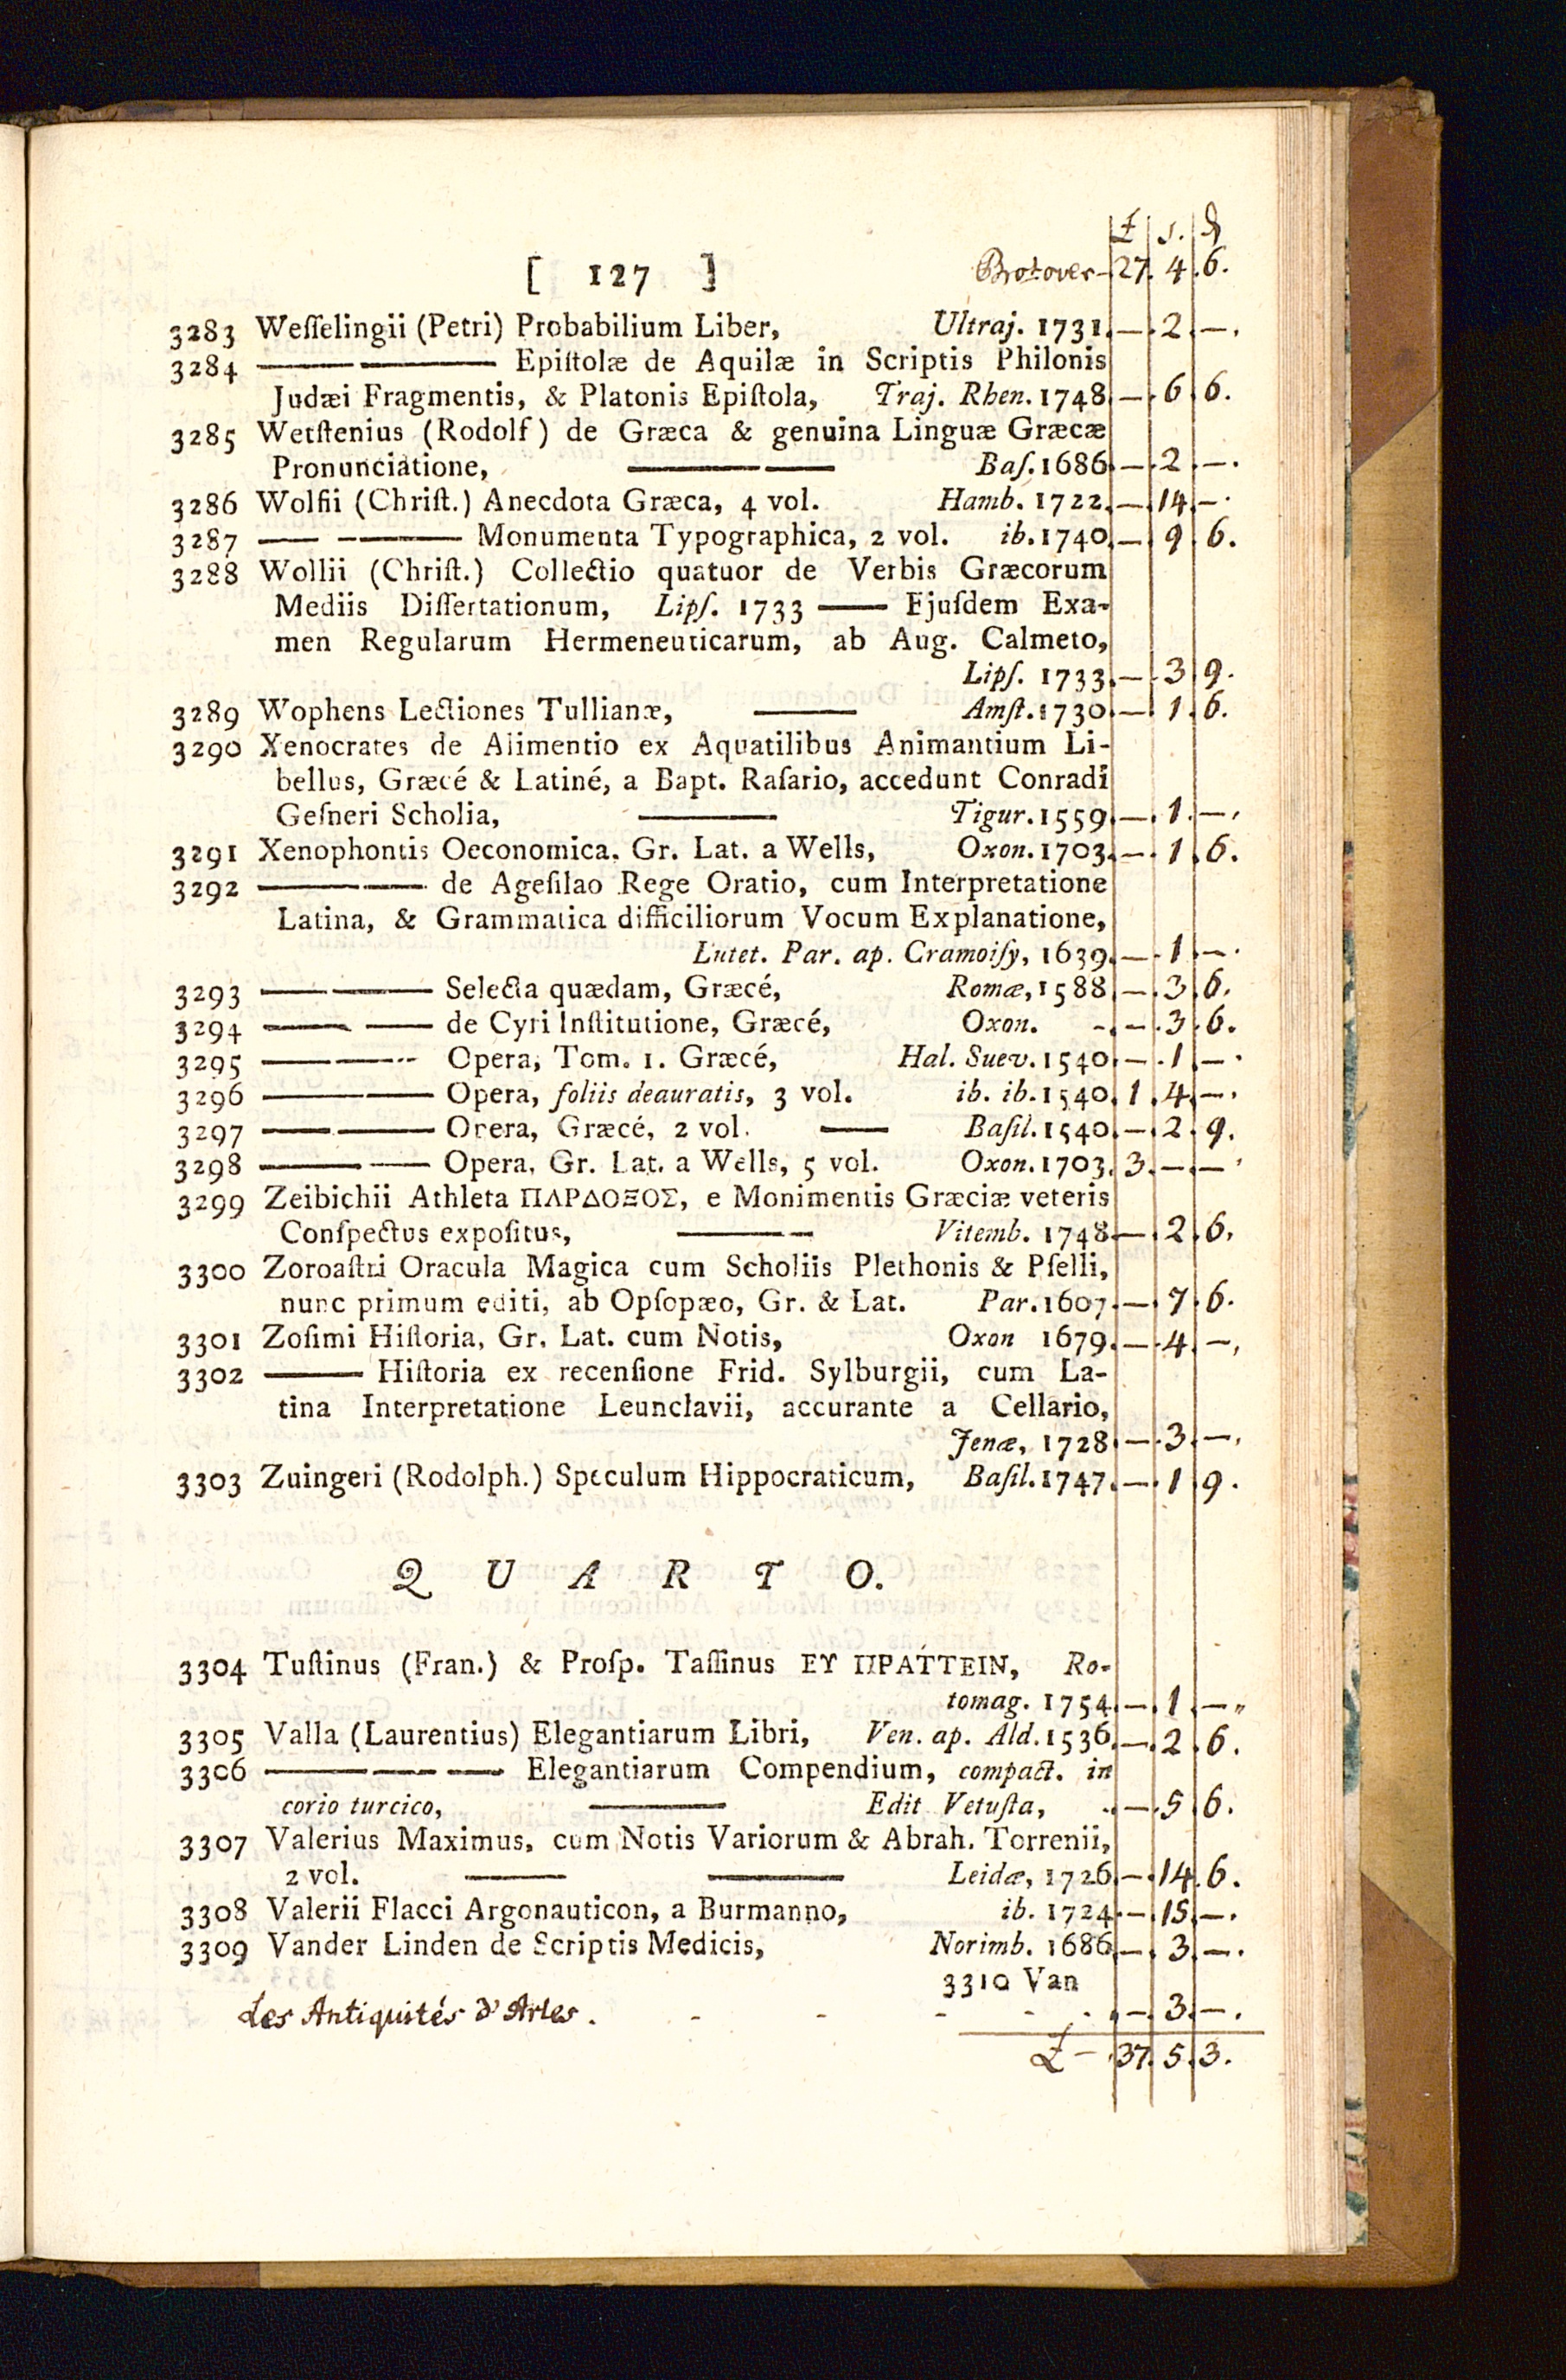 £ s. d
[ 127 ] Brot over - 27. 4. 6.
3283 Weſſelingii (Petri) Probabilium Liber, Ultraj. 1731. — . 2 . — .
3284 —— —— Epiſtolæ de Aquilæ in Scriptis Philonis
Judæi Fragmentis, & Platonis Epiſtola, Traj. Rhen. 1748. — . 6 . 6.
3285 Wetſtenius (Rodolf) de Græca & genuina Linguæ Græcæ
Pronunciatione, —— —— Baſ. 1686. — . 2 . — .
3286 Wolfii (Chriſt.) Anecdota Græca, 4 vol. Hamb. 1722. — . 14 . — .
3287 —— —— Monumenta Typographica, 2 vol. ib. 1740. — . 9 . 6.
3288 Wollii (Chriſt.) Collectio quatuor de Verbis Græcorum
Mediis Diſſertationum, Lipſ. 1733 —— Ejuſdem Exa-
men Regularum Hermeneuticarum, ab Aug. Calmeto,
Lipſ. 1733. — . 3 . 9.
3289 Wophens Lectiones Tullianæ, —— Amſt. 1730. — . 1 . 6.
3290 Xenocrates de Alimentio ex Aquatilibus Animantium Li-
bellus, Græcé & Latiné, a Bapt. Raſario, accedunt Conradi
Geſneri Scholia, —— Tigur. 1559. — . 1 . — .
3291 Xenophontis Oeconomica, Gr. Lat. a Wells, Oxon. 1703. — . 1 . 6.
3292 —— —— de Ageſilao Rege Oratio, cum Interpretatione
Latina, & Grammatica difficiliorum Vocum Explanatione,
Lutet. Par. ap. Cramoiſy, 1639. — . 1 . — .
3293 —— —— Selecta quædam, Græcé, Romæ, 1588. — . 3 . 6.
3294 —— —— de Cyri Inſtitutione, Græcé, Oxon. - . — . 3 . 6.
3295 —— —— Opera, Tom. 1. Græcé, Hal. Suev. 1540. — . 1 . — .
3296 —— —— Opera, foliis deauratis, 3 vol. ib. ib. 1540. 1 . 4 . — .
3297 —— —— Opera, Græcé, 2 vol. —— Baſil. 1540. — . 2 . 9.
3298 —— —— Opera, Gr. Lat. a Wells, 5 vol. Oxon. 1703. 3 . — . — .
3299 Zeibichii Athleta ΠΑΡΔΟΞΟΣ, e Monimentis Græciæ veteris
Conſpectus expoſitus, —— —— Vitemb. 1748. — . 2 . 6.
3300 Zoroaſtri Oracula Magica cum Scholiis Plethonis & Pſelli,
nunc primum editi, ab Opſopæo, Gr. & Lat. Par. 1607. — . 7 . 6.
3301 Zoſimi Hiſtoria, Gr. Lat. cum Notis, Oxon 1679. — . 4 . — .
3302 —— Hiſtoria ex recenſione Frid. Sylburgii, cum La-
tina Interpretatione Leunclavii, accurante a Cellario,
Jenæ, 1728. — . 3 . — .
3303 Zuingeri (Rodolph.) Speculum Hippocraticum, Baſil. 1747. — . 1 . 9.
QUARTO.
3304 Tuſtinus (Fran.) & Proſp. Taſſinus ΕΥ ΠΡΑΤΤΕΙΝ, Ro-
tomag. 1754. — . 1 . — .
3305 Valla (Laurentius) Elegantiarum Libri, Ven. ap. Ald. 1536. — . 2 . 6.
3306 —— —— —— Elegantiarum Compendium, compact. in
corio turcico, —— Edit Vetuſta, . — . 5 . 6.
3307 Valerius Maximus, cum Notis Variorum & Abrah. Torrenii,
2 vol. —— —— Leidæ, 1726. — . 14 . 6.
3308 Valerii Flacci Argonauticon, a Burmanno, ib. 1724. — . 15 . — .
3309 Vander Linden de Scriptis Medicis, Norimb. 1686. — . 3 . — .
3310 Van
Les Antiquités d'Arles. - - - - . — . 3 . — .
£ — . 37. 5. 3.